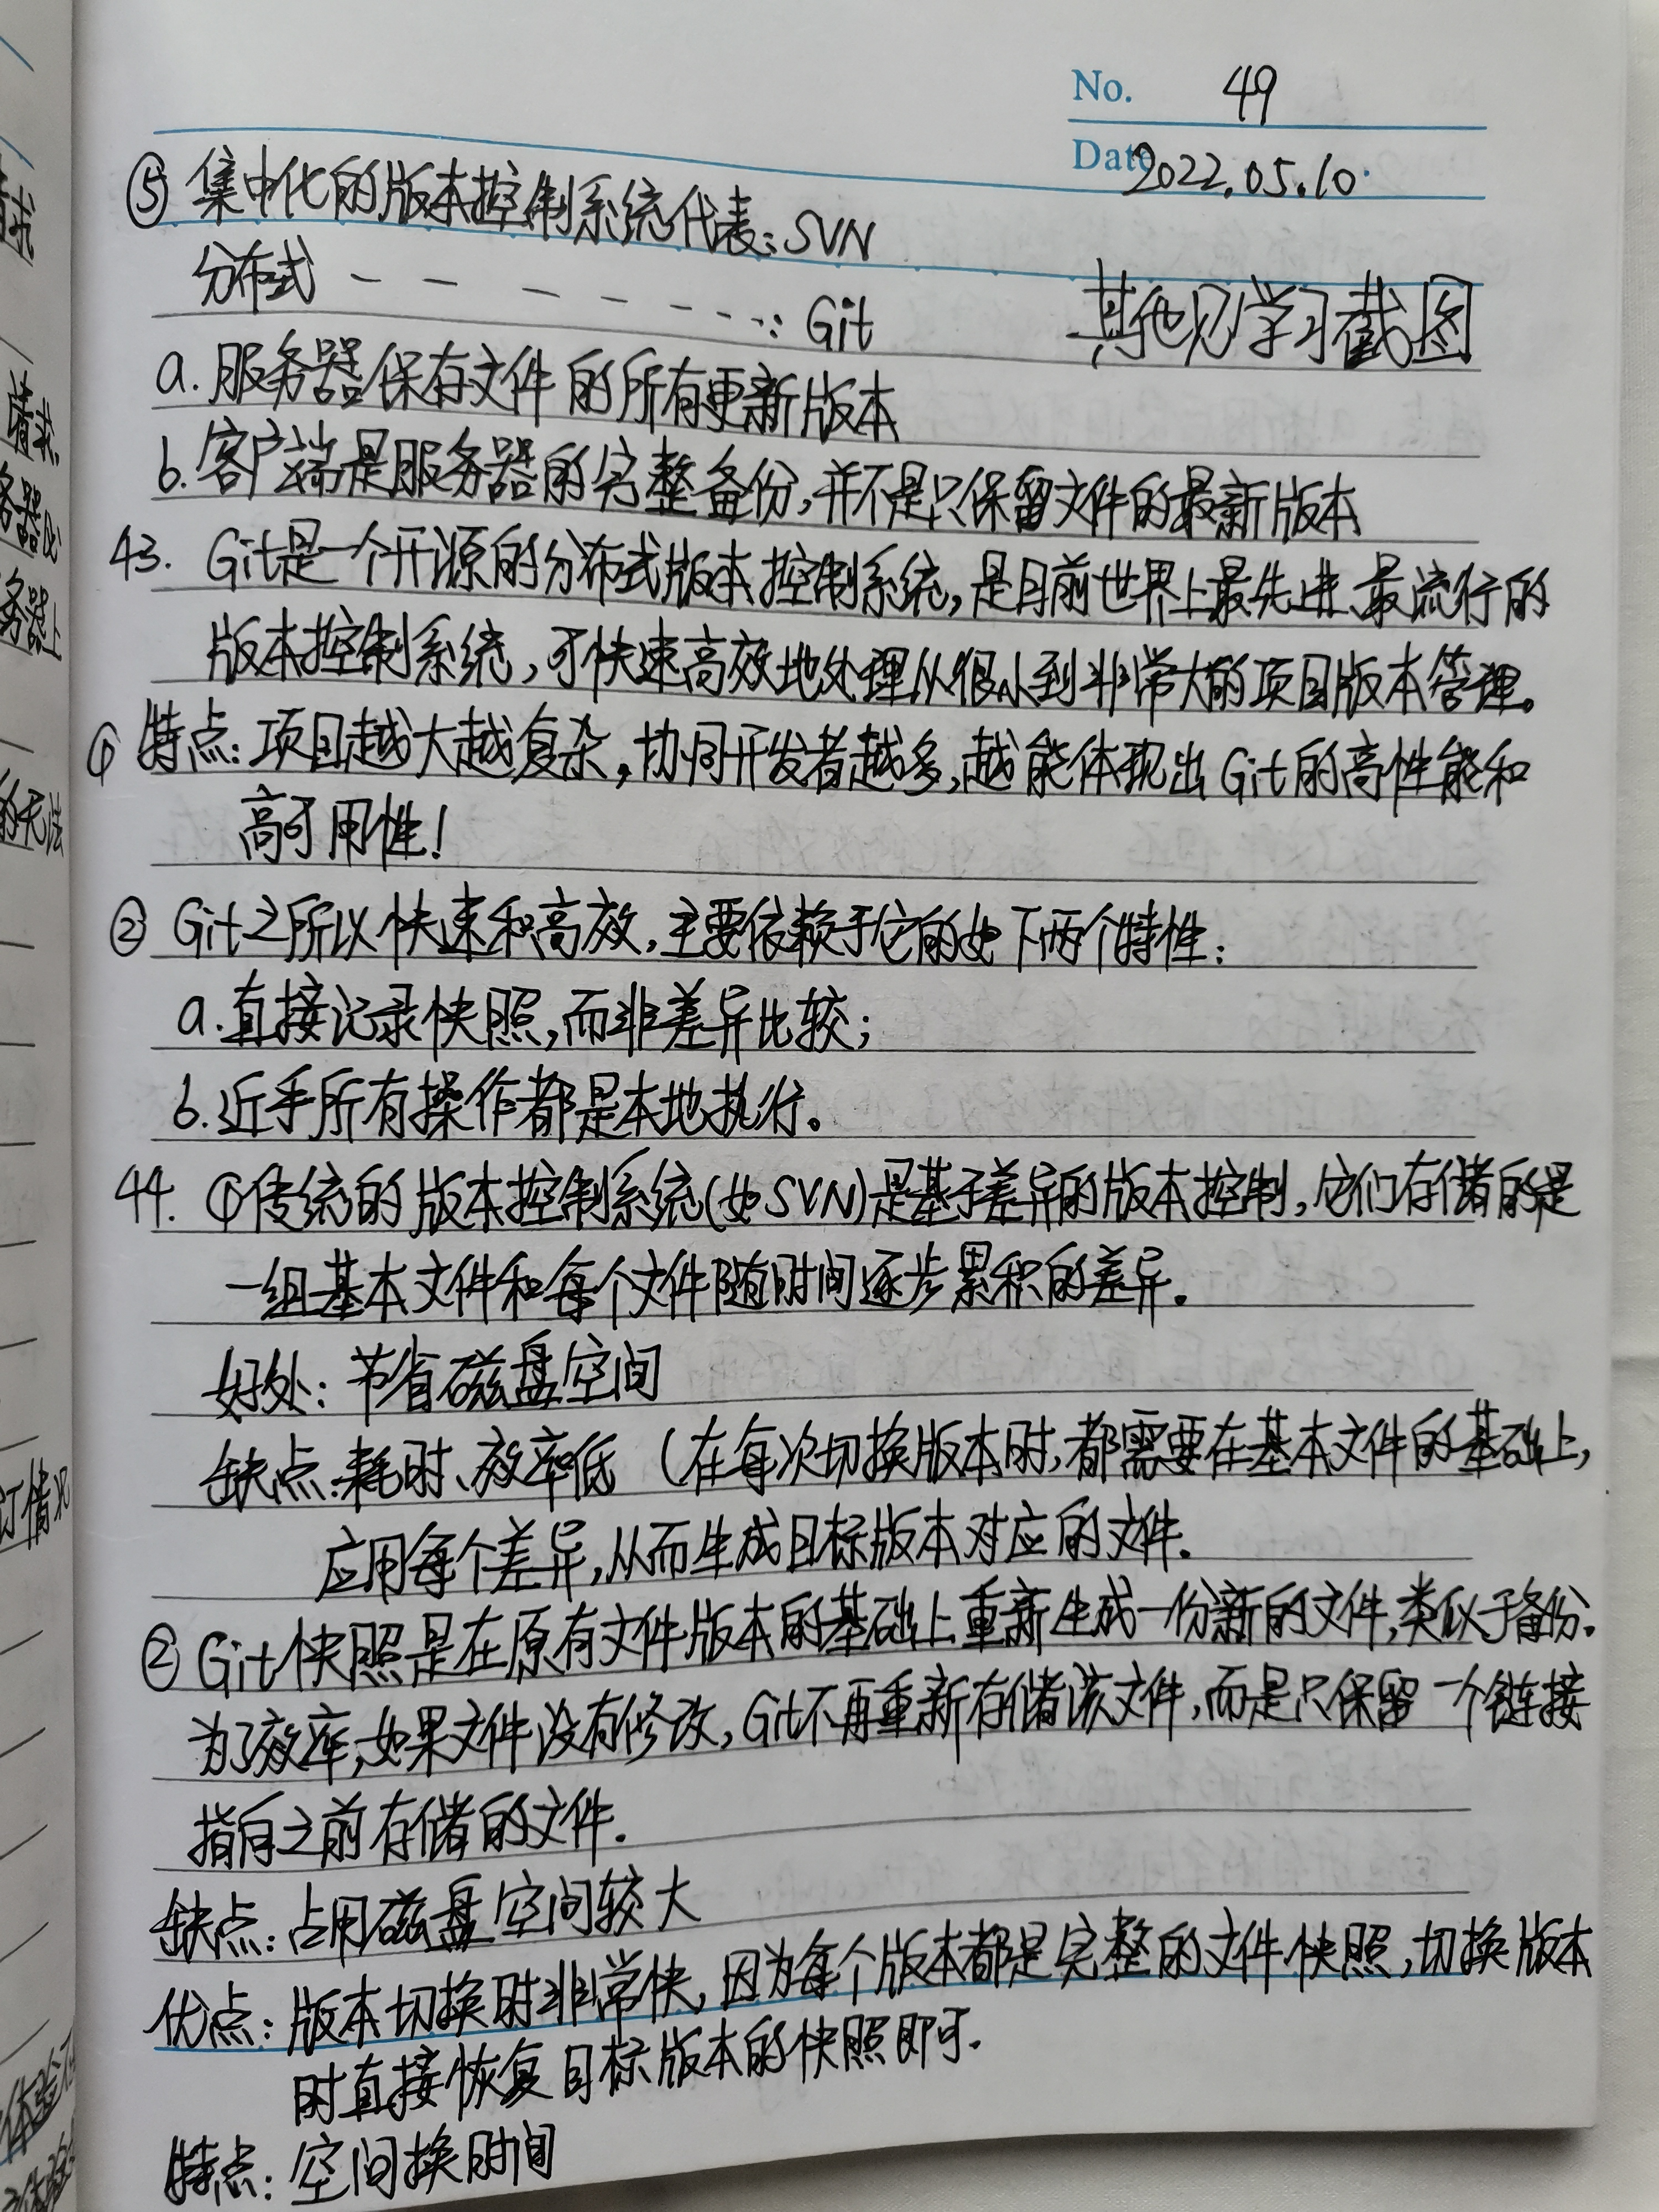 No. 49
Date 2022.05.10.
⑤ 集中化的版本控制系统代表:SVN
分布式 — — — — — - - -: Git
其他见学习截图
a. 服务器保存文件的所有更新版本
b. 客户端是服务器的完整备份,并不是只保留文件的最新版本
43. Git是一个开源的分布式版本控制系统,是目前世界上最先进、最流行的
版本控制系统,可快速高效地处理从很小到非常大的项目版本管理。
① 特点:项目越大越复杂,协同开发者越多,越能体现出Git的高性能和
高可用性!
② Git之所以快速和高效,主要依赖于它的如下两个特性:
a.直接记录快照,而非差异比较;
b.近乎所有操作都是本地执行。
44. ①传统的版本控制系统(如SVN)是基于差异的版本控制,它们存储的是
一组基本文件和每个文件随时间逐步累积的差异.
好处:节省磁盘空间
缺点:耗时、效率低 (在每次切换版本时,都需要在基本文件的基础上,
应用每个差异,从而生成目标版本对应的文件.
② Git快照是在原有文件版本的基础上重新生成一份新的文件,类似于备份.
为了效率,如果文件没有修改,Git不再重新存储该文件,而是只保留一个链接
指向之前存储的文件.
缺点:占用磁盘空间较大
优点:版本切换时非常快,因为每个版本都是完整的文件快照,切换版本
时直接恢复目标版本的快照即可.
特点:空间换时间
请求
务器上
的无法